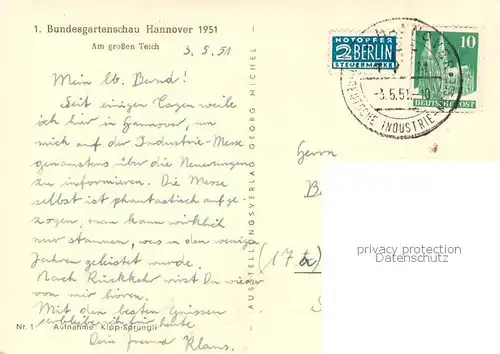 1. Bundesgartenschau Hannover 1951
Am großen Teich
3.5.51
Mein lb. Bernd!
Seit einigen Tagen weile
ich hier in Hannover, um
mich auf der Industrie-Messe
genaustens über die Neuerungen
zu informieren. Die Messe
selbst ist phantastisch aufge
zogen, man kann wirklich
nur staunen, was in den wenigen
Jahren geleistet wurde.
Nach Rückkehr wirst Du wieder
von mir hören.
Mit den besten Grüssen
verbleibe ich für heute
Dein Freund Klaus.
Nr. 1 Aufnahme: Kipp-Sprüngli
AUSSTELLUNGSVERLAG GEORG MICHEL
NOTOPFER
2 BERLIN
STEUERMARKE
10
DEUTSCHE POST
-3.5.51-10
DEUTSCHE INDUSTRIE-
Herrn
(17
privacy protection
Datenschutz